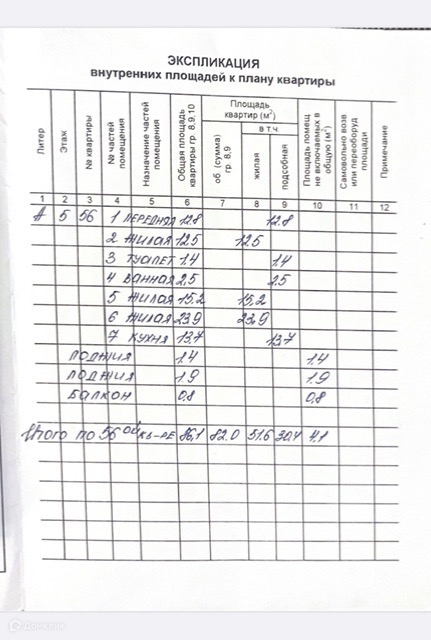 ЭКСПЛИКАЦИЯ
внутренних площадей к плану квартиры
Литер
Этаж
№ квартиры
№ частей помещения
Назначение частей помещения
Общая площадь квартиры гр 8,9,10
Площадь квартир (м²)
об. (сумма) гр. 8,9
в т.ч
жилая
подсобная
Площадь помещ не включаемых в общую (м²)
Самовольно возв или переоборуд площади
Примечание
1 2 3 4 5 6 7 8 9 10 11 12
А 5 56 1 ПЕРЕДНЯЯ 12.8 12.8
2 ЖИЛАЯ 12.5 12.5
3 ТУАЛЕТ 1.4 1.4
4 ВАННАЯ 2.5 2.5
5 ЖИЛАЯ 15.2 15.2
6 ЖИЛАЯ 23.9 23.9
7 КУХНЯ 13.7 13.7
ЛОДЖИЯ 1.4 1.4
ЛОДЖИЯ 1.9 1.9
БАЛКОН 0,8 0,8
Итого по 56ой кв-ре 86,1 82.0 51.6 30.4 4.1
Домклик